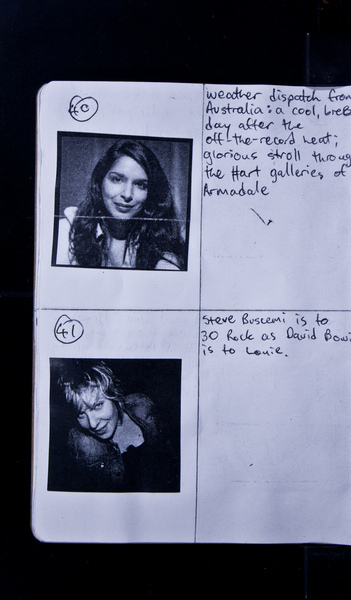 40
weather dispatch from
Australia: a cool, breezy
day after the
off-the-record heat;
glorious stroll through
the Hart galleries of
Armadale
41
Steve Buscemi is to
30 Rock as David Bowi
is to Louie.